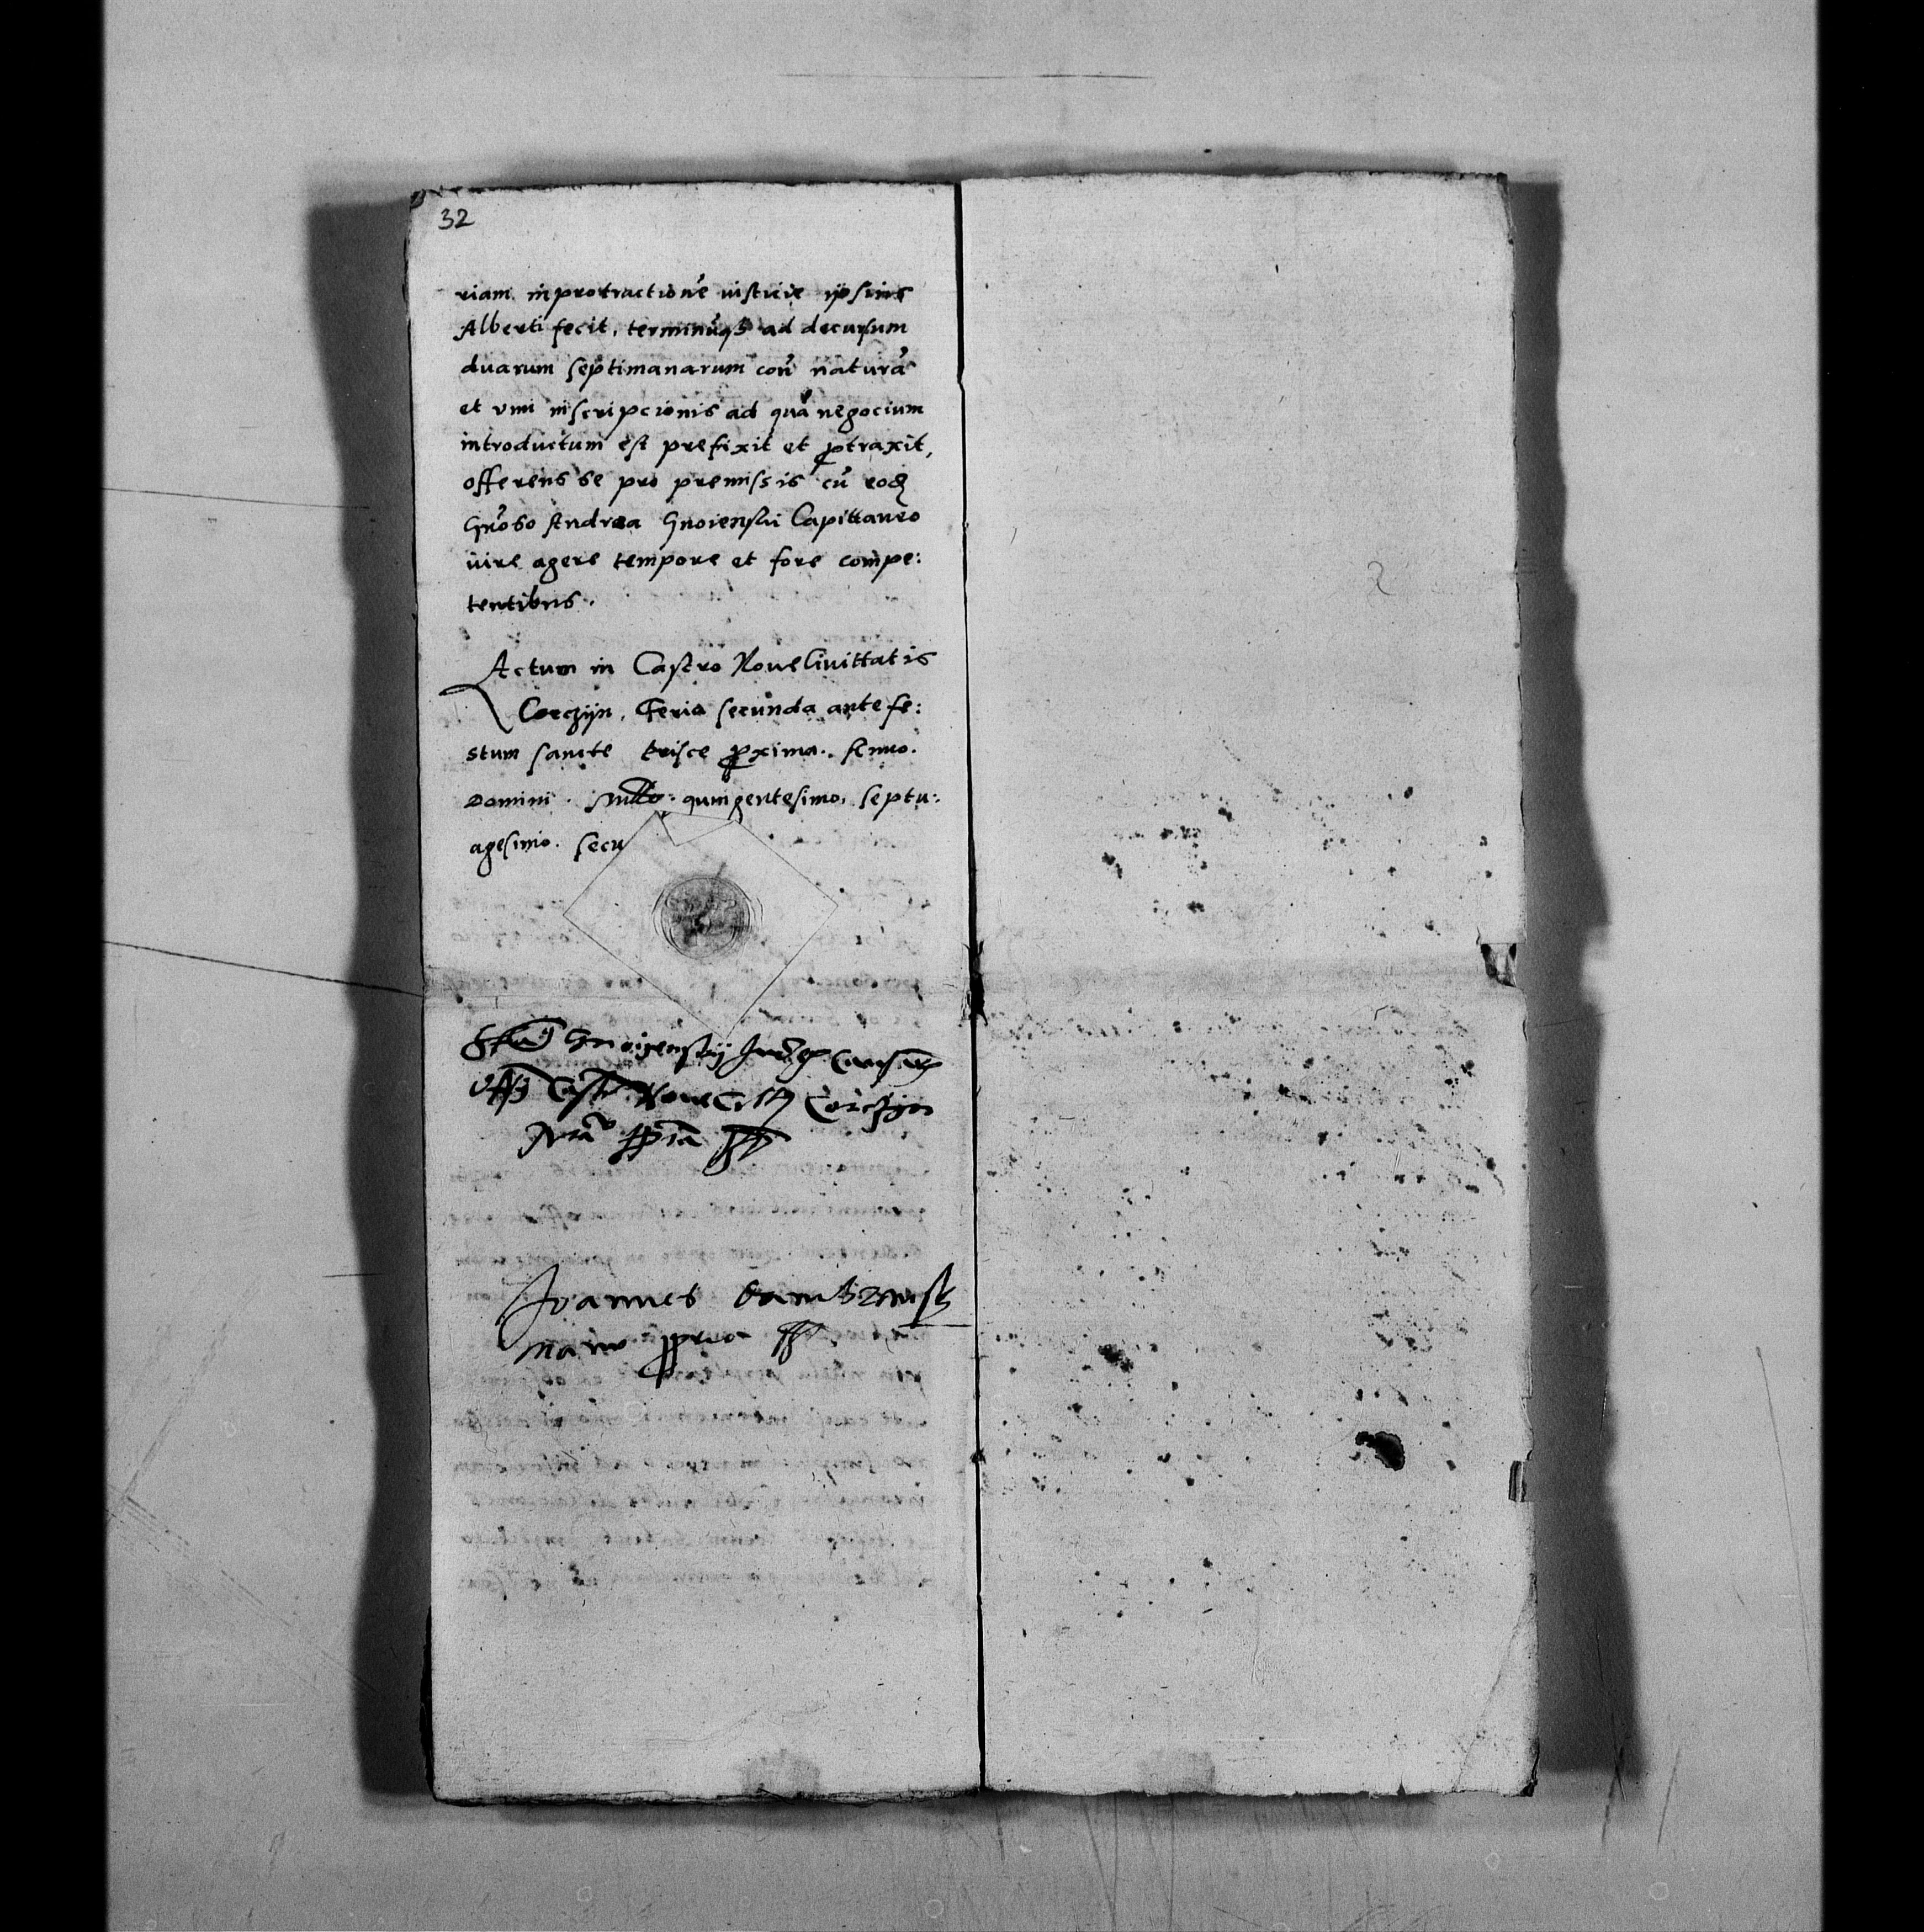 32
riam in protractione̅ iusticie ipsius
Alberti fecit, terminu̅q3 ad decursum
duarum septimanarum con̅ natura̅
et vim inscripcionis ad qua̅ negocium
introductum est prefixit et ptraxit,
offerens se pro premissis cu̅ eod
Gn̅oso Andrea Gnoienski Capittaneo
iure agere tempore et fore compe:
tentibus.
Actum in Castro Noue Ciuittatis
Corczijn, Feria secunda ante fe:
stum sancte Prisce pxima. Anno.
Domini. Mille̅o: quingentesimo, septu:
agesimo. secu
Gnoijenskij Iudex Causar
Castr Noue Corczijn
Joannes Dambrowsk
manu ppria
2